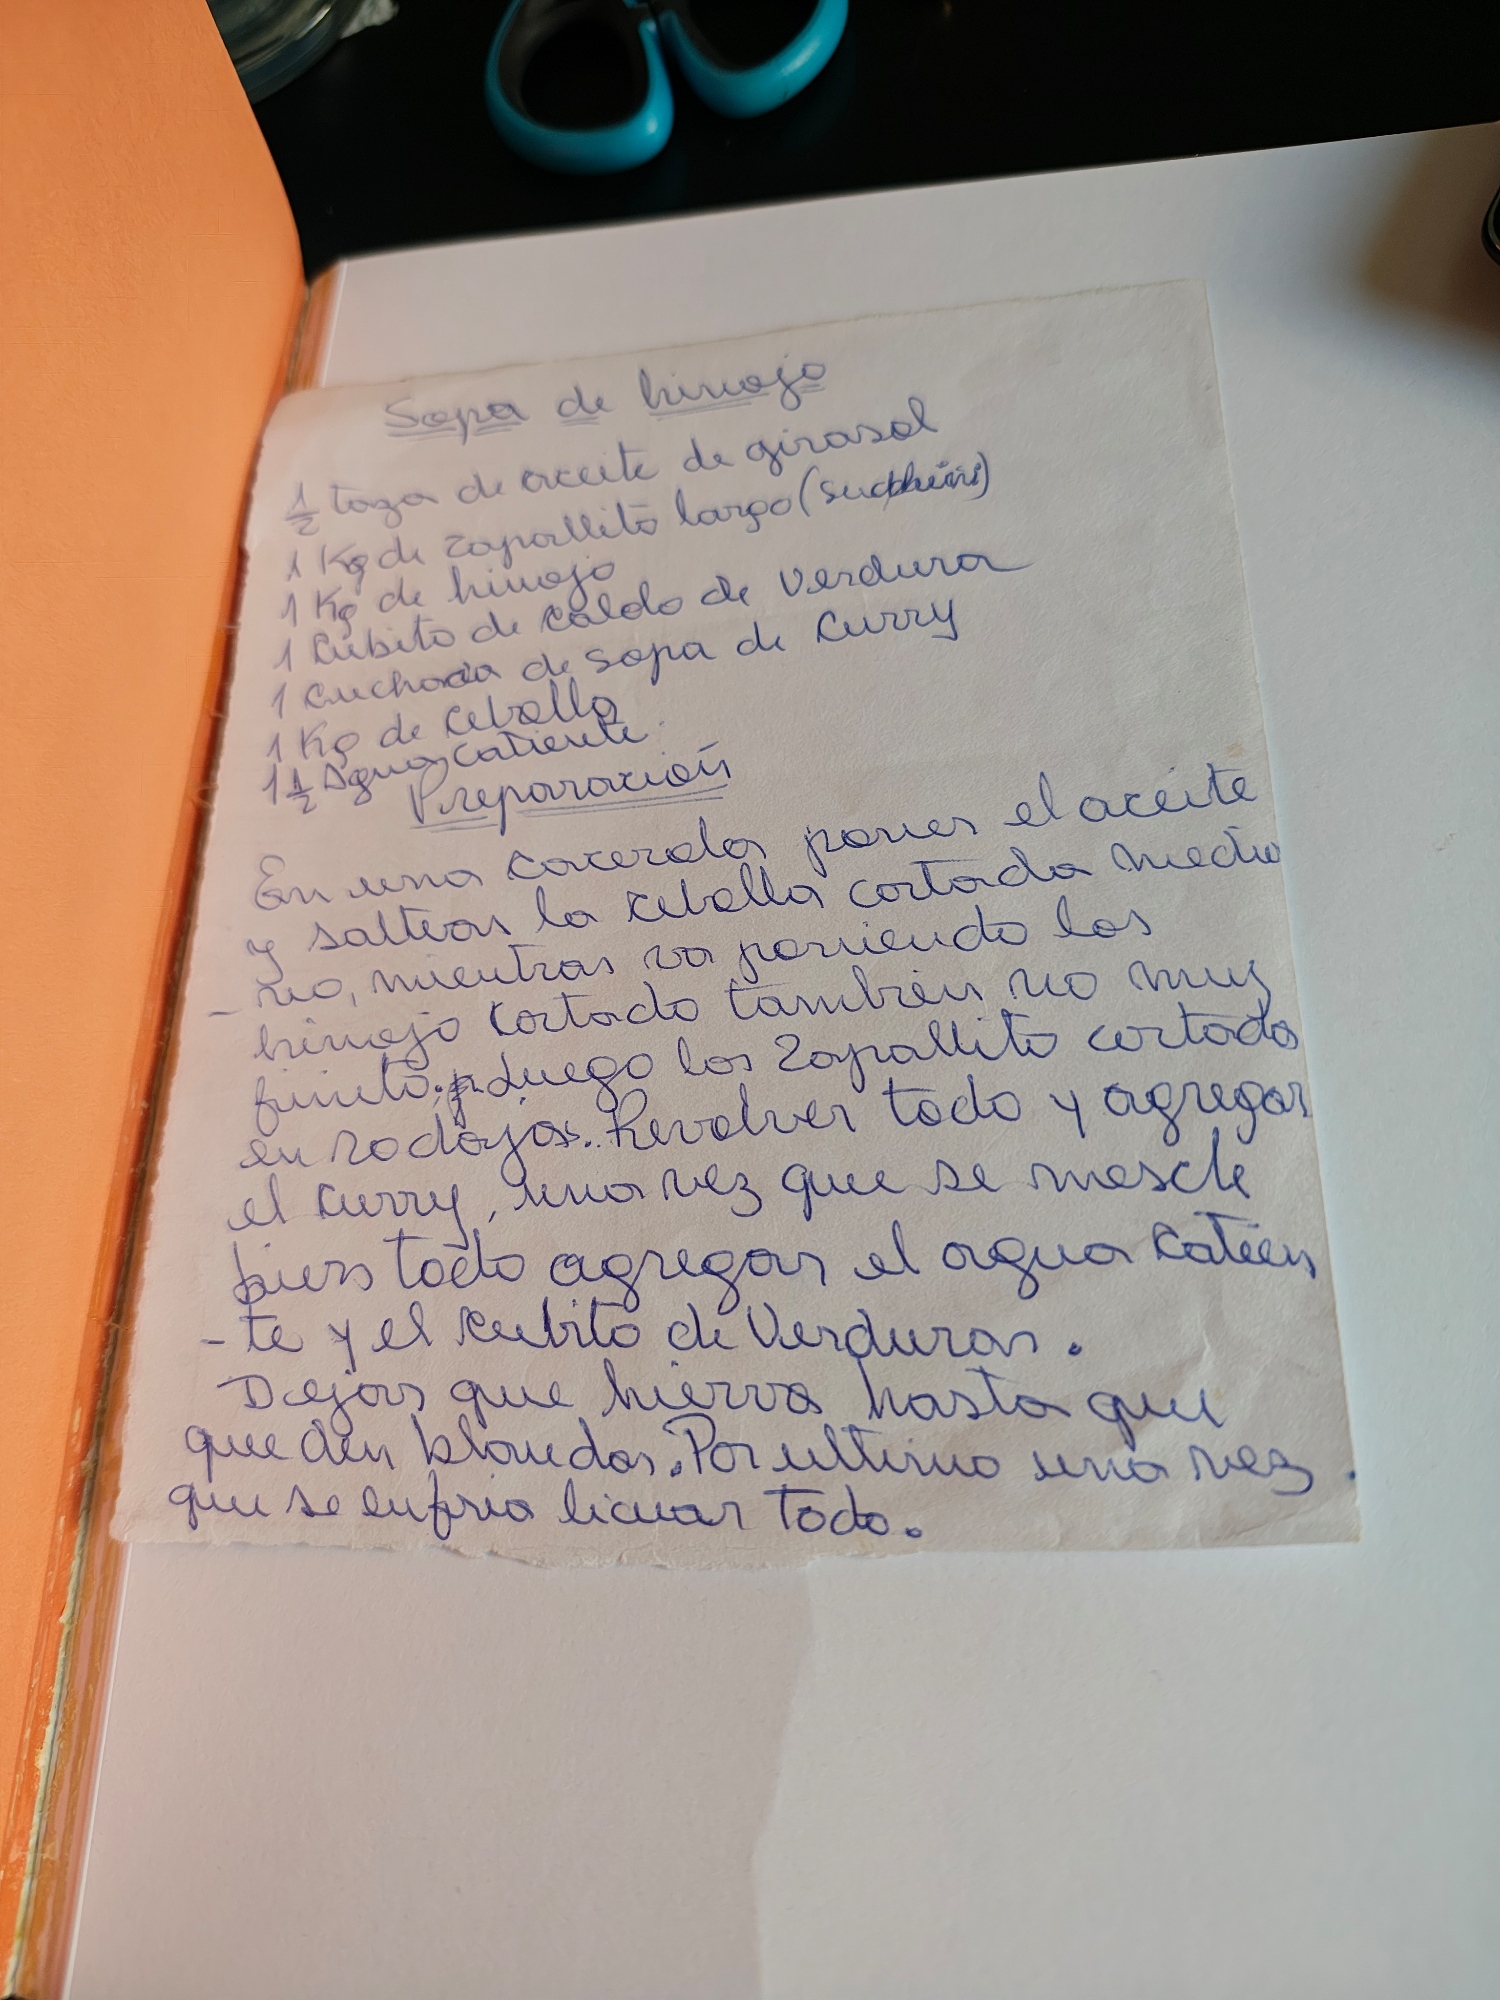 Sopa de hinojo
1/2 taza de aceite de girasol
1 Kg de Zapallito largo (succhini)
1 Kg de hinojo
1 Cubito de Caldo de Verdura
1 Cucharada de Sopa de Curry
1 Kg de Cebolla
1 1/2 Agua Catiente
Preparación
En una cacerola poner el aceite
y saltear la cebolla cortada medio
- no, mientras va poniendo los
hinojo cortado también no muy
finito. Luego los Zapallito cortado
en rodajas. Revolver todo y agregar
el Curry, una vez que se mescle
bien todo agregar el agua Catien
- te y el Cubito de Verduras.
Dejar que hierva hasta que
queden blandas. Por ultimo una vez
que se enfria licuar todo.